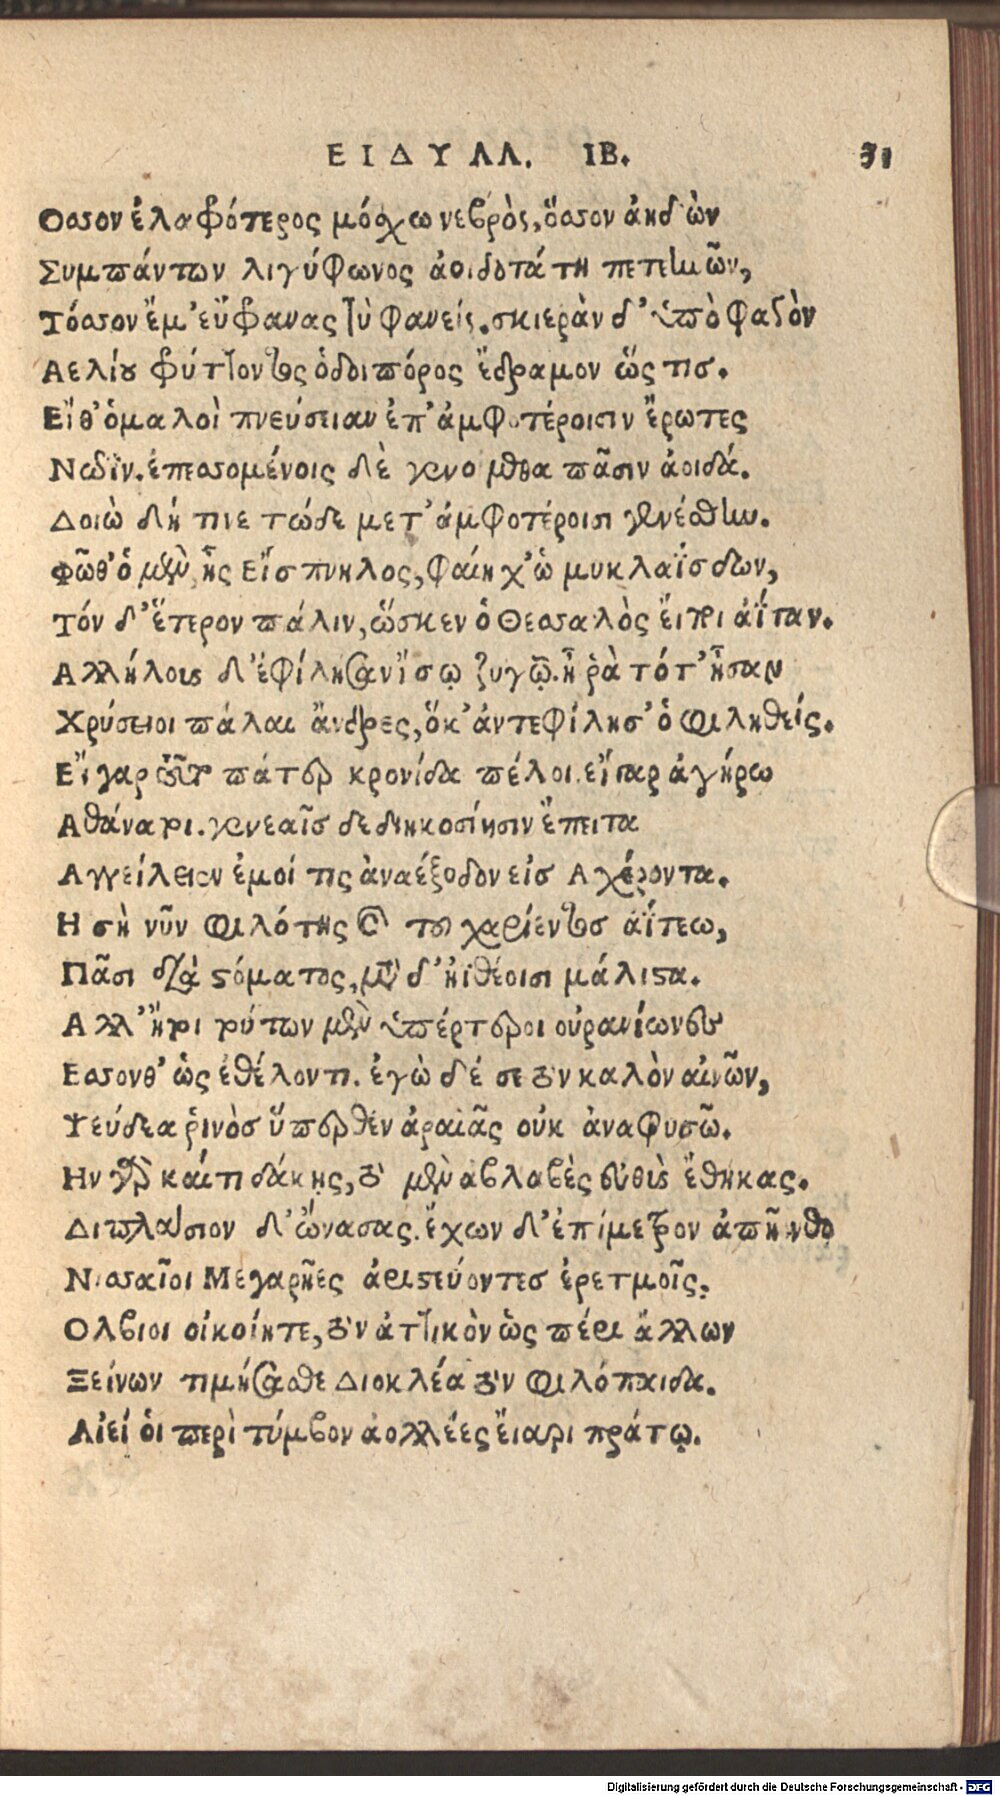 ΕΙΔΥΛΛ. ΙΒ. 31
Οασον ἐλαφότερος μόσχω νεβρὸς, ὅασον ἀηδὼν
Συμπάντων λιγύφωνος ἀοιδοτάτη πετεηνῶν,
Τόασον ἔμ' εὔφανας τὺ φανείς. σκιερὰν δ' ὑπὸ φαγὸν
Αελίου φύττοντος ὁδοιπόρος ἔδραμον ὥς τισ.
Εἴθ' ὁμαλοὶ πνεύσειαν ἐπ' ἀμφοτέροισιν ἔρωτες
Νῶϊν. ἐπεασομένοις δὲ γενοίμεθα πᾶσιν ἀοιδά.
Δοιὼ δή τινε τώδε μετ' ἀμφοτέροισι γενέσθην.
Φῶθ' ὁ μὲν ἦς Εἴσπνηλος, φαίη χ' ὡ μυκλαΐσδων,
Τόν δ' ἕτερον πάλιν, ὥσκεν ὁ Θεασαλὸς εἴπρι ἀΐταν.
Αλλήλους δ' ἐφίλησαν ἴσῳ ζυγῷ. ἦ ῥὰ τότ' ἦσαν
Χρύσειοι πάλαι ἄνδρες, ὅκ' ἀντεφίλησ' ὁ φιληθείς.
Εἴ γαρ τοῦτο πάτερ κρονίδα πέλοι. εἴπαρ ἀγήρω
Αθάνατοι. γενεαῖσ δε διηκοσίησιν ἔπειτα
Αγγείλειεν ἐμοί τις ἀναέξοδον εἰσ Αχέροντα.
Η σὴ νῦν φιλότης καὶ τοῦ χαρίεντοσ ἀΐτεω,
Πᾶσι διὰ στόματος, μετὰ δ' ἠϊθέοισι μάλιστα.
Αλλ' ἤτοι τούτων μὲν ὑπέρτεροι οὐρανίωνες
Εασονθ' ὡς ἐθέλοντι. ἐγὼ δέ σε τὸν καλὸν αἰνῶν,
Ψεύδεα ῥινὸσ ὕπερθεν ἀραιᾶς οὐκ ἀναφυσῶ.
Ην γὰρ καίτι δάκῃς, τὸ μὲν αβλαβὲς εὐθὺς ἔθηκας.
Διπλάσιον δ' ὤνασας. ἔχων δ' ἐπίμετρον ἀπῆνθον
Νιασαῖοι Μεγαρῆες ἀριστεύοντεσ ἐρετμοῖς,
Ολβιοι οἰκοίητε, τὸν ἀττικὸν ὡς πέρι ἄλλων
Ξείνων τιμήσασθε Διοκλέα τὸν φιλόπαιδα.
Αἰεί ὁι περὶ τύμβον ἀολλέες εἴαρι πράτῳ.
Digitalisierung gefördert durch die Deutsche Forschungsgemeinschaft - DFG